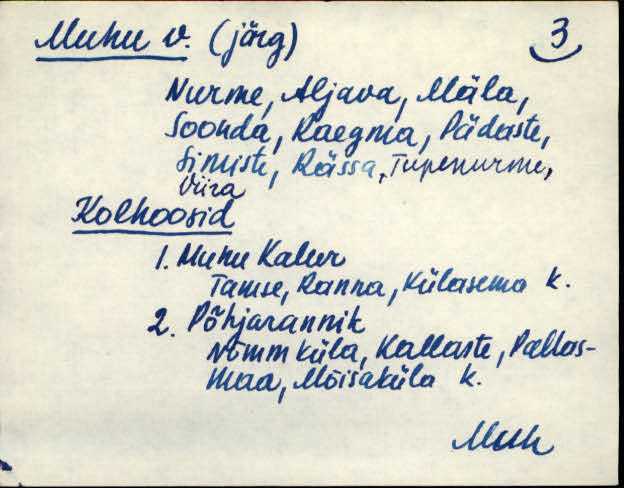 Muhu v. (järg) 3
Nurme, Aljava, Mäla,
Soonda, Raegma, Pädaste,
Simiste, Rässa, Tupenurme,
Viira
Kolhoosid
1. Muhu Kalur
Tamse, Ranna, Külasema k.
2. Põhjarannik
Nõmmküla, Kallaste, Pallas-
maa, Mõisaküla k.
Muh